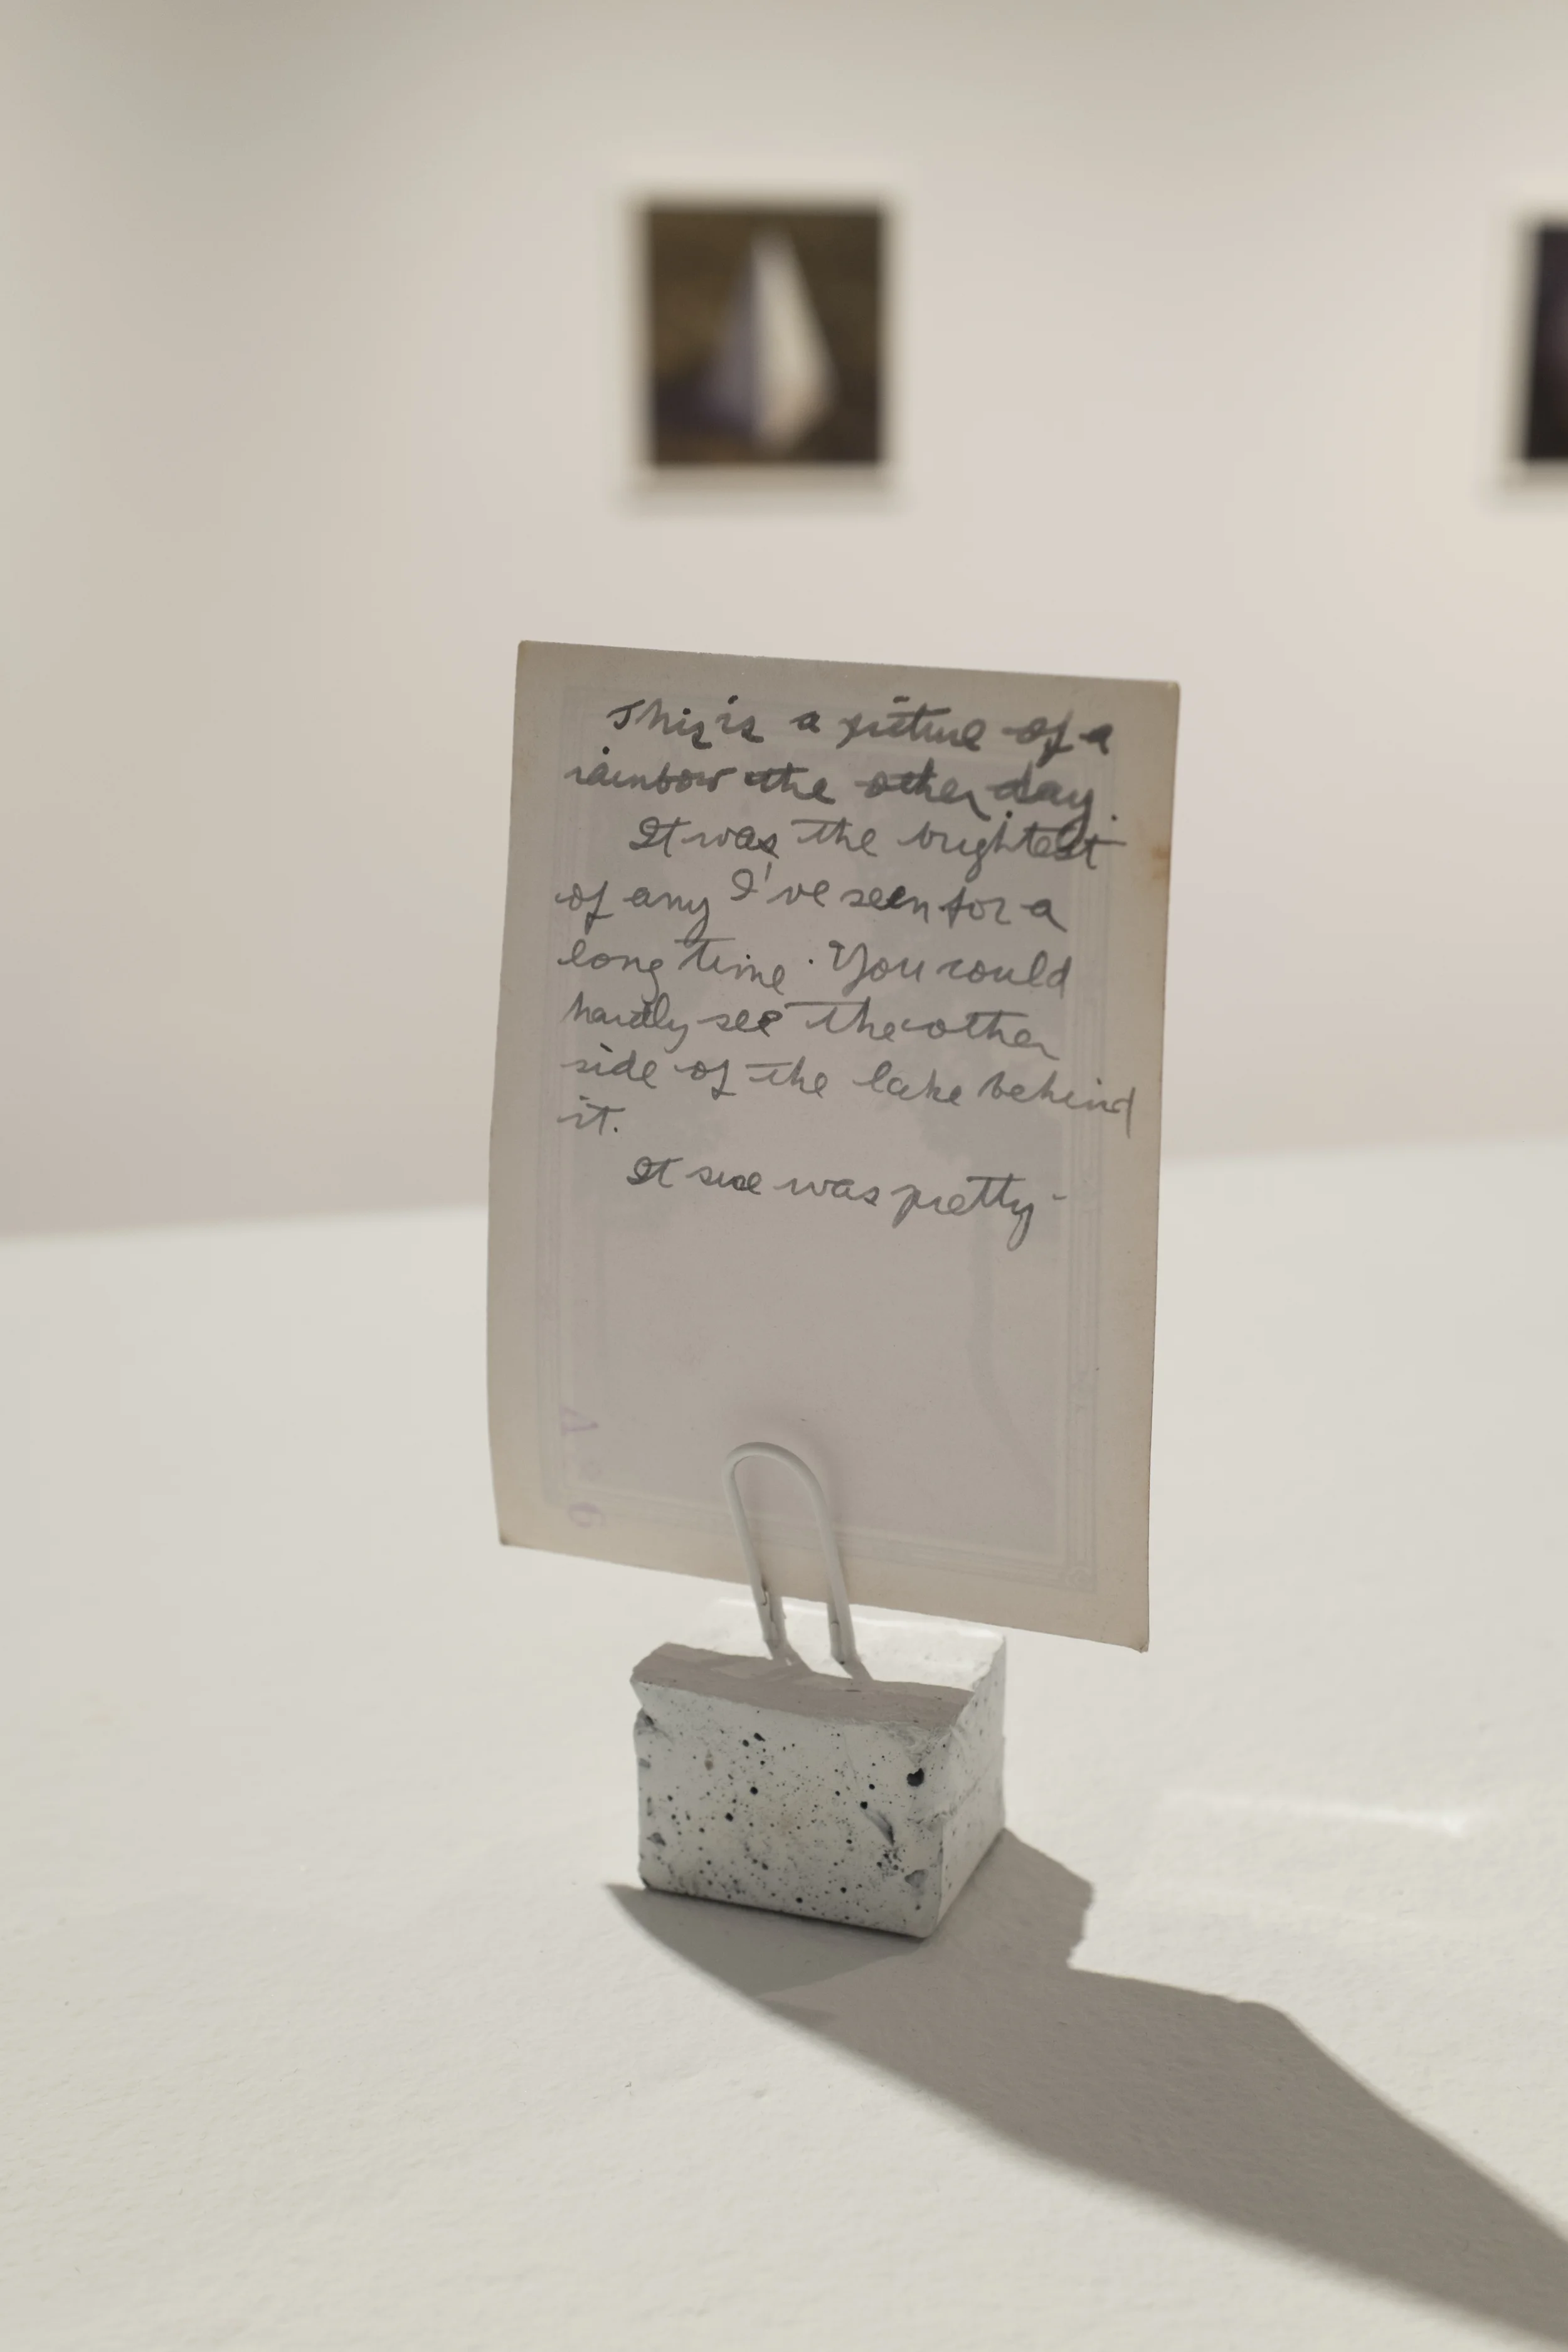 This is a picture of a
rainbow the other day.
It was the brightest
of any I've seen for a
long time. You could
hardly see the other
side of the lake behind
it.
It sure was pretty-